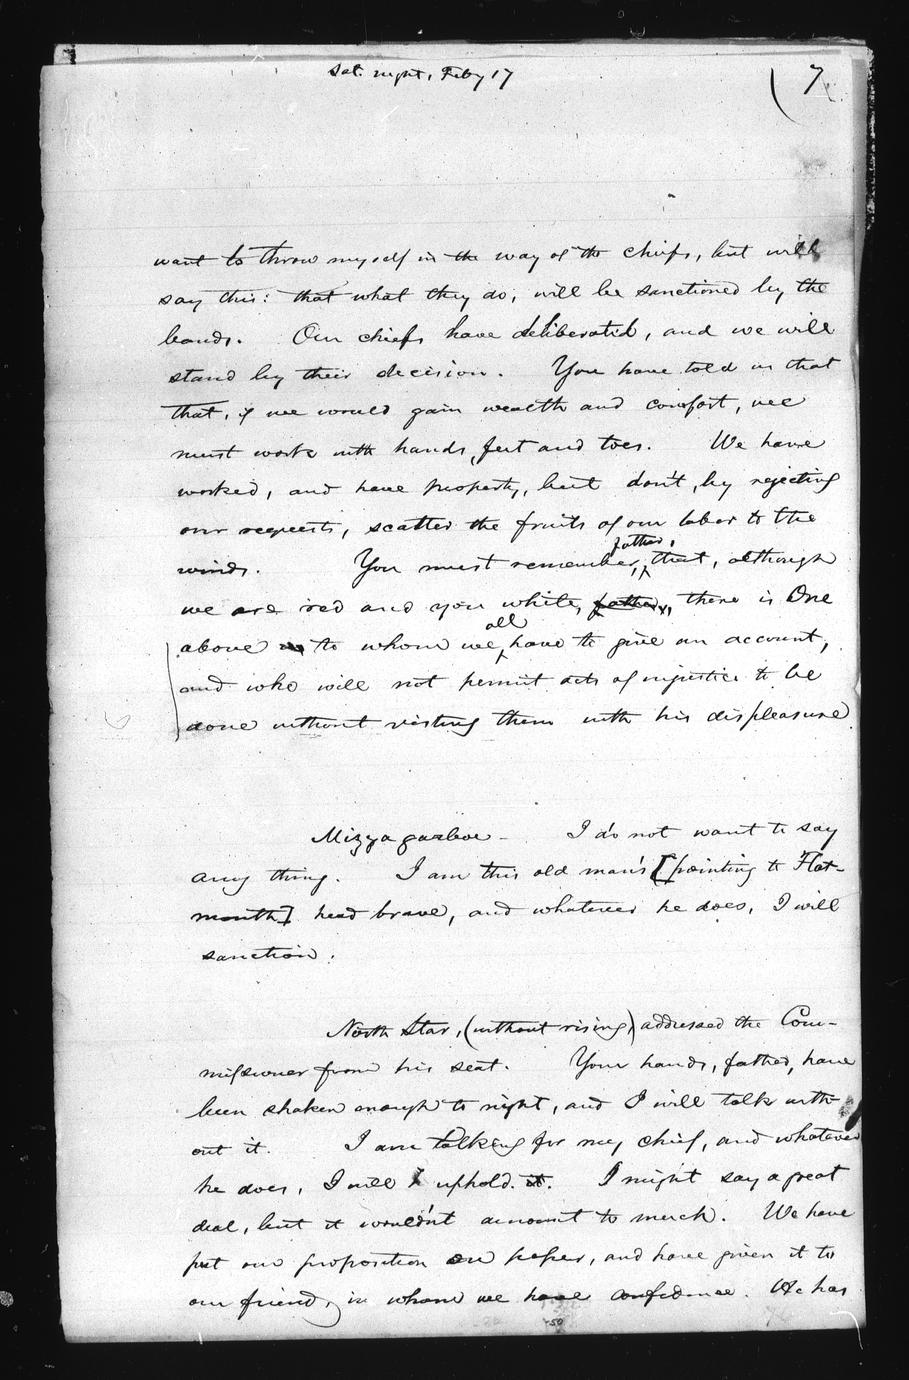 Sat. night, Feby 17
7
want to throw myself in the way of the chiefs, but will
say this: that what they do, will be sanctioned by the
bands. Our chiefs have deliberated, and we will
stand by their decision. You have told us that
that, if we would gain wealth and comfort, we
must work with hands, feet and toes. We have
worked, and have property, but don't, by rejecting
our requests, scatter the fruits of our labor to the
father,
winds. You must remember, that, although
we are red and you white, father, there is One
all
above to whom we have to give an account,
and who will not permit acts of injustice to be
done without visiting them with his displeasure
Mizzagaaboe - I do not want to say
any thing. I am this old man's [pointing to Flat-
mouth] head brave, and whatever he does, I will
sanction.
North Star, (without rising) addressed the Com-
missioner from his seat. Your hands, father, have
been shaken enough to night, and I will talk with-
out it. I am talking for my chief, and whatever
he does, I will uphold. it. I might say a great
deal, but it wouldn't amount to much. We have
put our proposition on paper, and have given it to
our friend, in whom we have confidence. He has